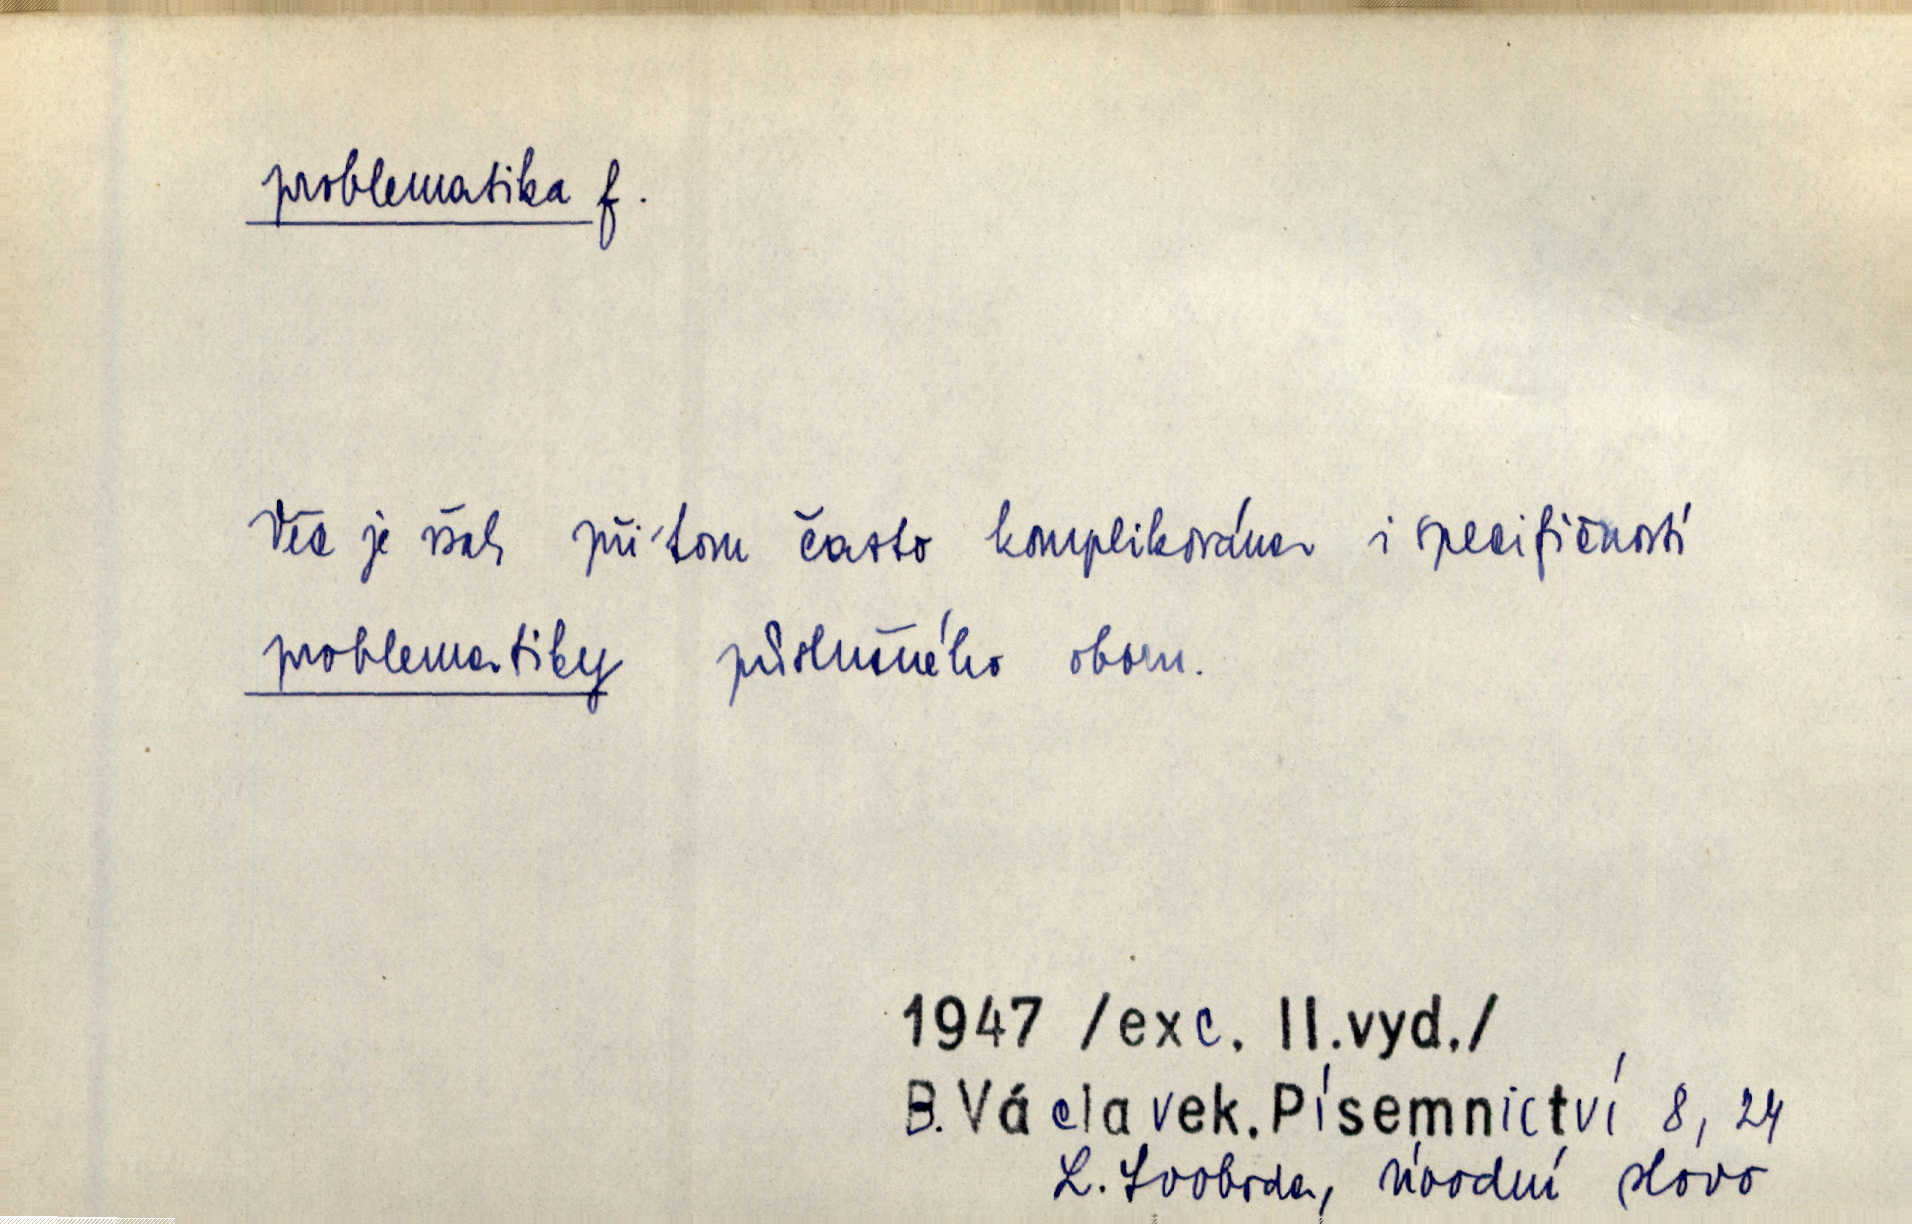 problematika f.
Věc je však při tom často komplikována i specifičností
problematiky příslušného oboru.
1947 /exc. II.vyd./
B.Václavek.Písemnictví 8, 24
L. Svoboda, úvodní slovo